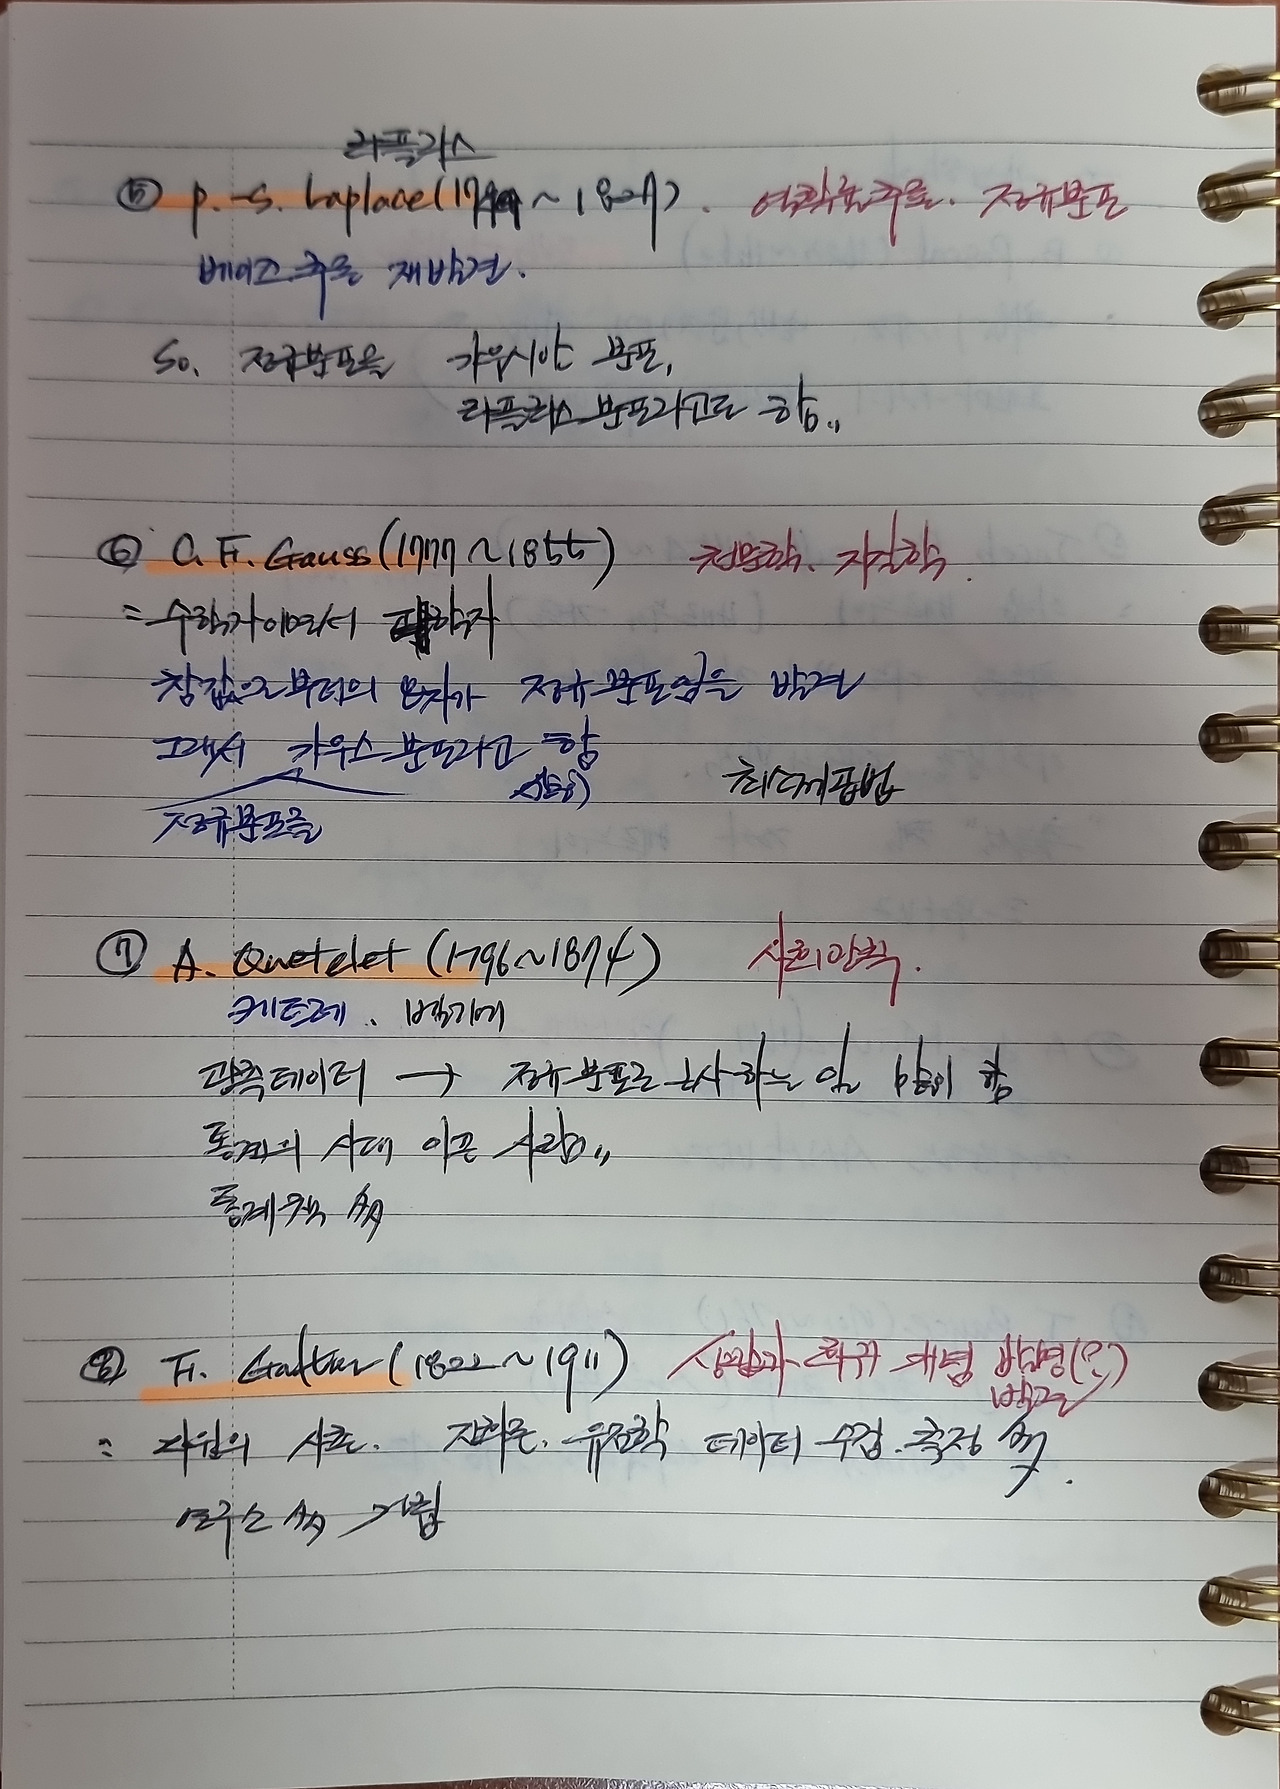 라플라스
⑤ P.-S. Laplace (17 ~ 1827). 정규분포
베이즈 추론 재발견.
So. 정규분포를 가우시안 분포,
라플라스 분포라고도 함..
⑥ C. F. Gauss (1777 ~ 1855) 천문학.
= 수학자이면서 학자
참값으로부터의 오차가 정규분포임을 발견
그래서 가우스 분포라고 함
정규분포를 최소제곱법
⑦ A. Quetelet (1796 ~ 1874) 사회
케트레. 벨기에
관측데이터 → 정규분포로 근사하는 일 많이 함
통계의 시대 이끈 사람..
통계 多
⑧ F. (1822 ~ 1911) 상관과 회귀 개념 발명(?)
발견
= 다윈의 사촌. 진화론. 유전학 데이터 수집. 측정 多.
연구소 多 건립